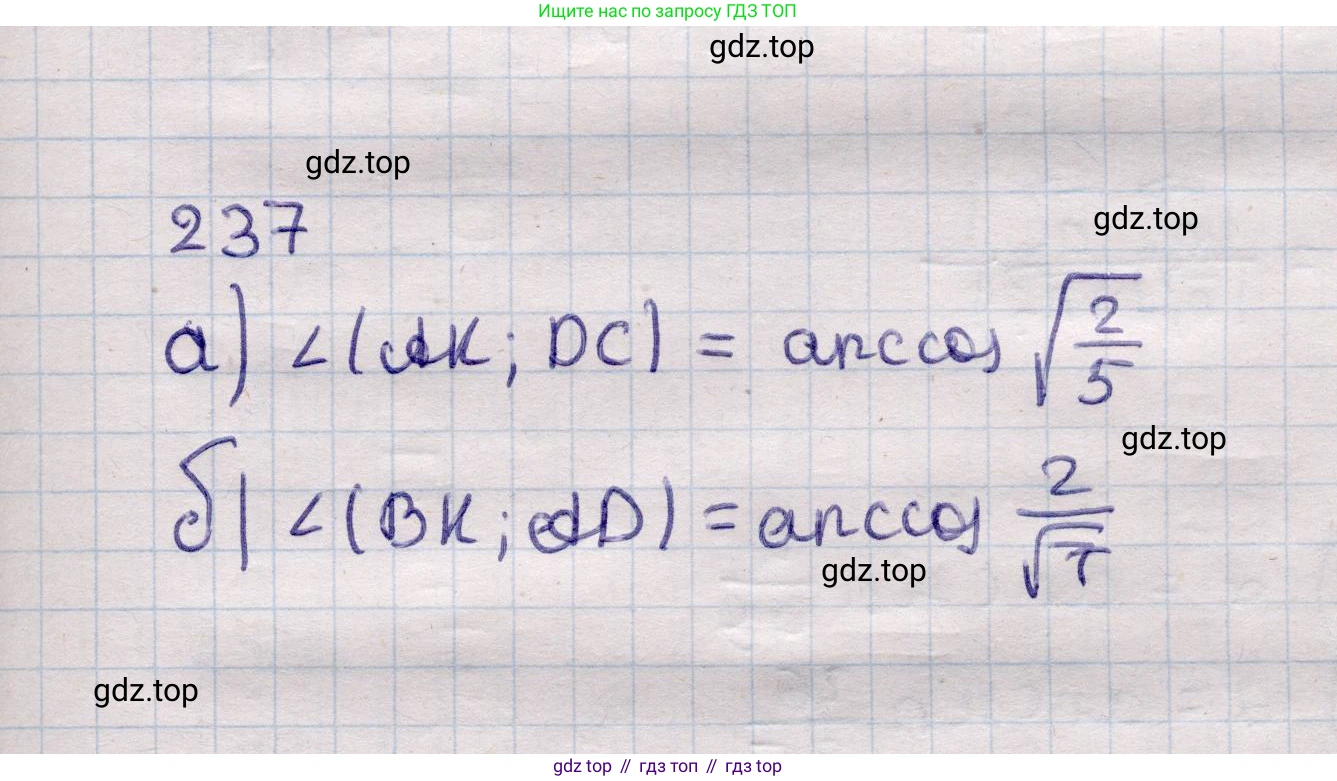 Ищите нас по запросу ГДЗ ТОП
gdz.top
gdz.top
237
gdz.top
а) ∠(AK; DC) = arccos √(2/5)
gdz.top
б) ∠(BK; AD) = arccos 2/√7
gdz.top
gdz.top
gdz top // гдз топ // гдз топ